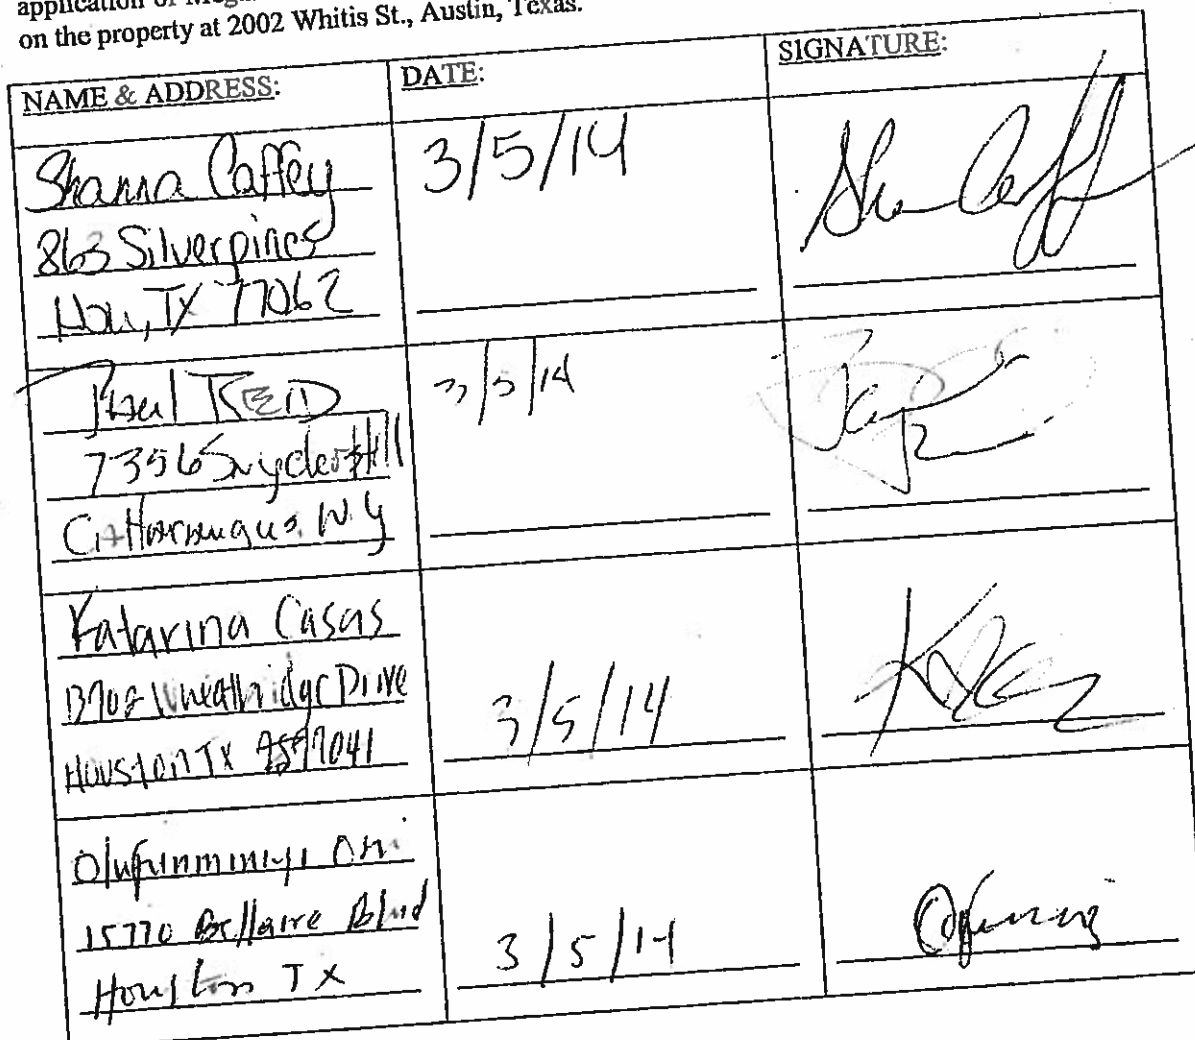 on the property at 2002 Whitis St., Austin, Texas.
NAME & ADDRESS: DATE: SIGNATURE:
Shanna Caffey 3/5/14
863 Silverpines
Hou, TX 77062
Paul REED 3/5/14
7356 Snyder Hill
Cattaraugus, NY
Katarina Casas
13702 Wheatbridge Drive 3/5/14
Houston TX 77041
15770 Bellaire Blvd
Houston TX 3/5/14